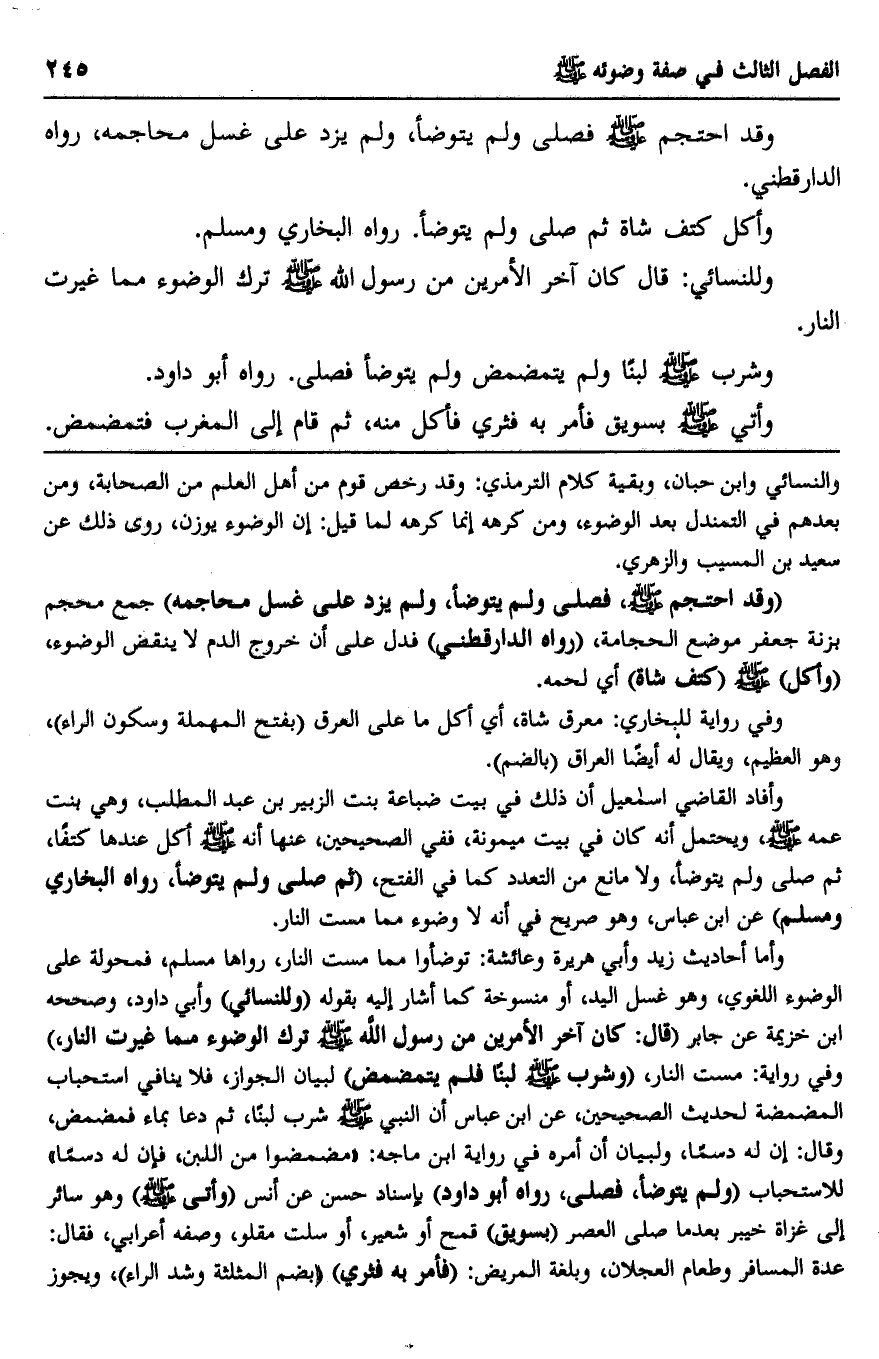 الفصل الثالث في صفة وضوئه ﷺ ٢٤٥
وقد احتجم ﷺ فصلى ولم يتوضأ، ولم يزد على غسل محاجمه، رواه
الدارقطني.
وأكل كتف شاة ثم صلى ولم يتوضأ. رواه البخاري ومسلم.
وللنسائي: قال كان آخر الأمرين من رسول الله ﷺ ترك الوضوء مما غيرت
النار.
وشرب ﷺ لبنًا ولم يتمضمض ولم يتوضأ فصلى. رواه أبو داود.
وأتي ﷺ بسويق فأمر به فثري فأكل منه، ثم قام إلى المغرب فتمضمض.
والنسائي وابن حبان، وبقية كلام الترمذي: وقد رخص قوم من أهل العلم من الصحابة، ومن
بعدهم في التمندل بعد الوضوء، ومن كرهه إنما كرهه لما قيل: إن الوضوء يوزن، روى ذلك عن
سعيد بن المسيب والزهري.
(وقد احتجم ﷺ، فصلى ولم يتوضأ، ولم يزد على غسل محاجمه) جمع محجم
بزنة جعفر موضع الحجامة، (رواه الدارقطني) فدل على أن خروج الدم لا ينقض الوضوء،
(وأكل) ﷺ (كتف شاة) أي لحمه.
وفي رواية للبخاري: معرق شاة، أي أكل ما على العرق (بفتح المهملة وسكون الراء)،
وهو العظيم، ويقال له أيضًا العراق (بالضم).
وأفاد القاضي اسمٰعيل أن ذلك في بيت ضباعة بنت الزبير بن عبد المطلب، وهي بنت
عمه ﷺ، ويحتمل أنه كان في بيت ميمونة، ففي الصحيحين، عنها أنه ﷺ أكل عندها كتفًا،
ثم صلى ولم يتوضأ، ولا مانع من التعدد كما في الفتح، (ثم صلى ولم يتوضأ، رواه البخاري
ومسلم) عن ابن عباس، وهو صريح في أنه لا وضوء مما مست النار.
وأما أحاديث زيد وأبي هريرة وعائشة: توضأوا مما مست النار، رواها مسلم، فمحولة على
الوضوء اللغوي، وهو غسل اليد، أو منسوخة كما أشار إليه بقوله (وللنسائي) وأبي داود، وصححه
ابن خزيمة عن جابر (قال: كان آخر الأمرين من رسول اللَّه ﷺ ترك الوضوء مما غيرت النار،)
وفي رواية: مست النار، (وشرب ﷺ لبنًا فلم يتمضمض) لبيان الجواز، فلا ينافي استحباب
المضمضة لحديث الصحيحين، عن ابن عباس أن النبي ﷺ شرب لبنًا، ثم دعا بماء فمضمض،
وقال: إن له دسمًا، ولبيان أن أمره في رواية ابن ماجه: «مضمضوا من اللبن، فإن له دسمًا»
للاستحباب (ولم يتوضأ، فصلى، رواه أبو داود) بإسناد حسن عن أنس (وأتى ﷺ) وهو سائر
إلى غزاة خيبر بعدما صلى العصر (بسويق) قمح أو شعير، أو سلت مقلو، وصفه أعرابي، فقال:
عدة المسافر وطعام العجلان، وبلغة المريض: (فأمر به فثري) (بضم المثلثة وشد الراء)، ويجوز